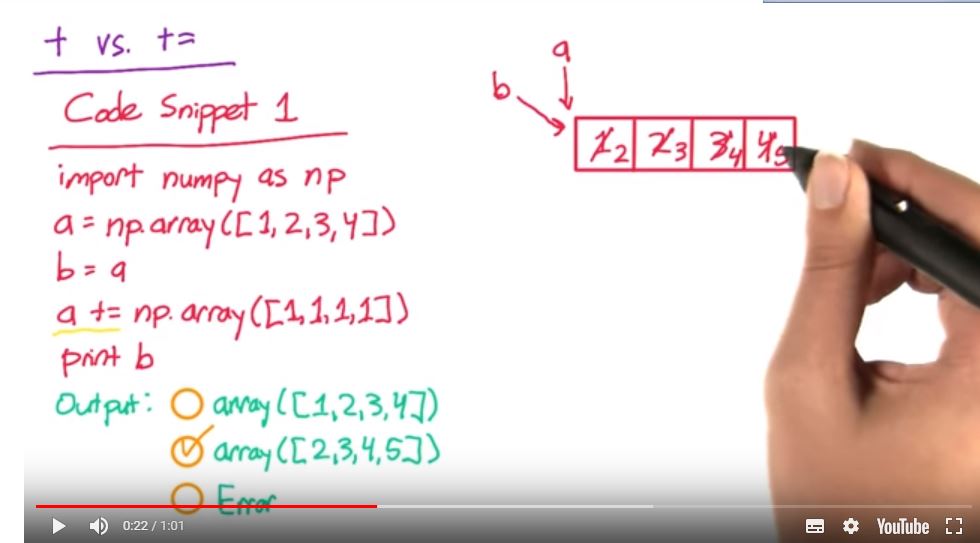 + vs. +=
Code Snippet 1
import numpy as np
a = np.array([1,2,3,4])
b = a
a += np.array([1,1,1,1])
print b
Output: array([1,2,3,4])
array([2,3,4,5])
Error
a
b
1 2 2 3 3 4 4 5
0:22 / 1:01
YouTube